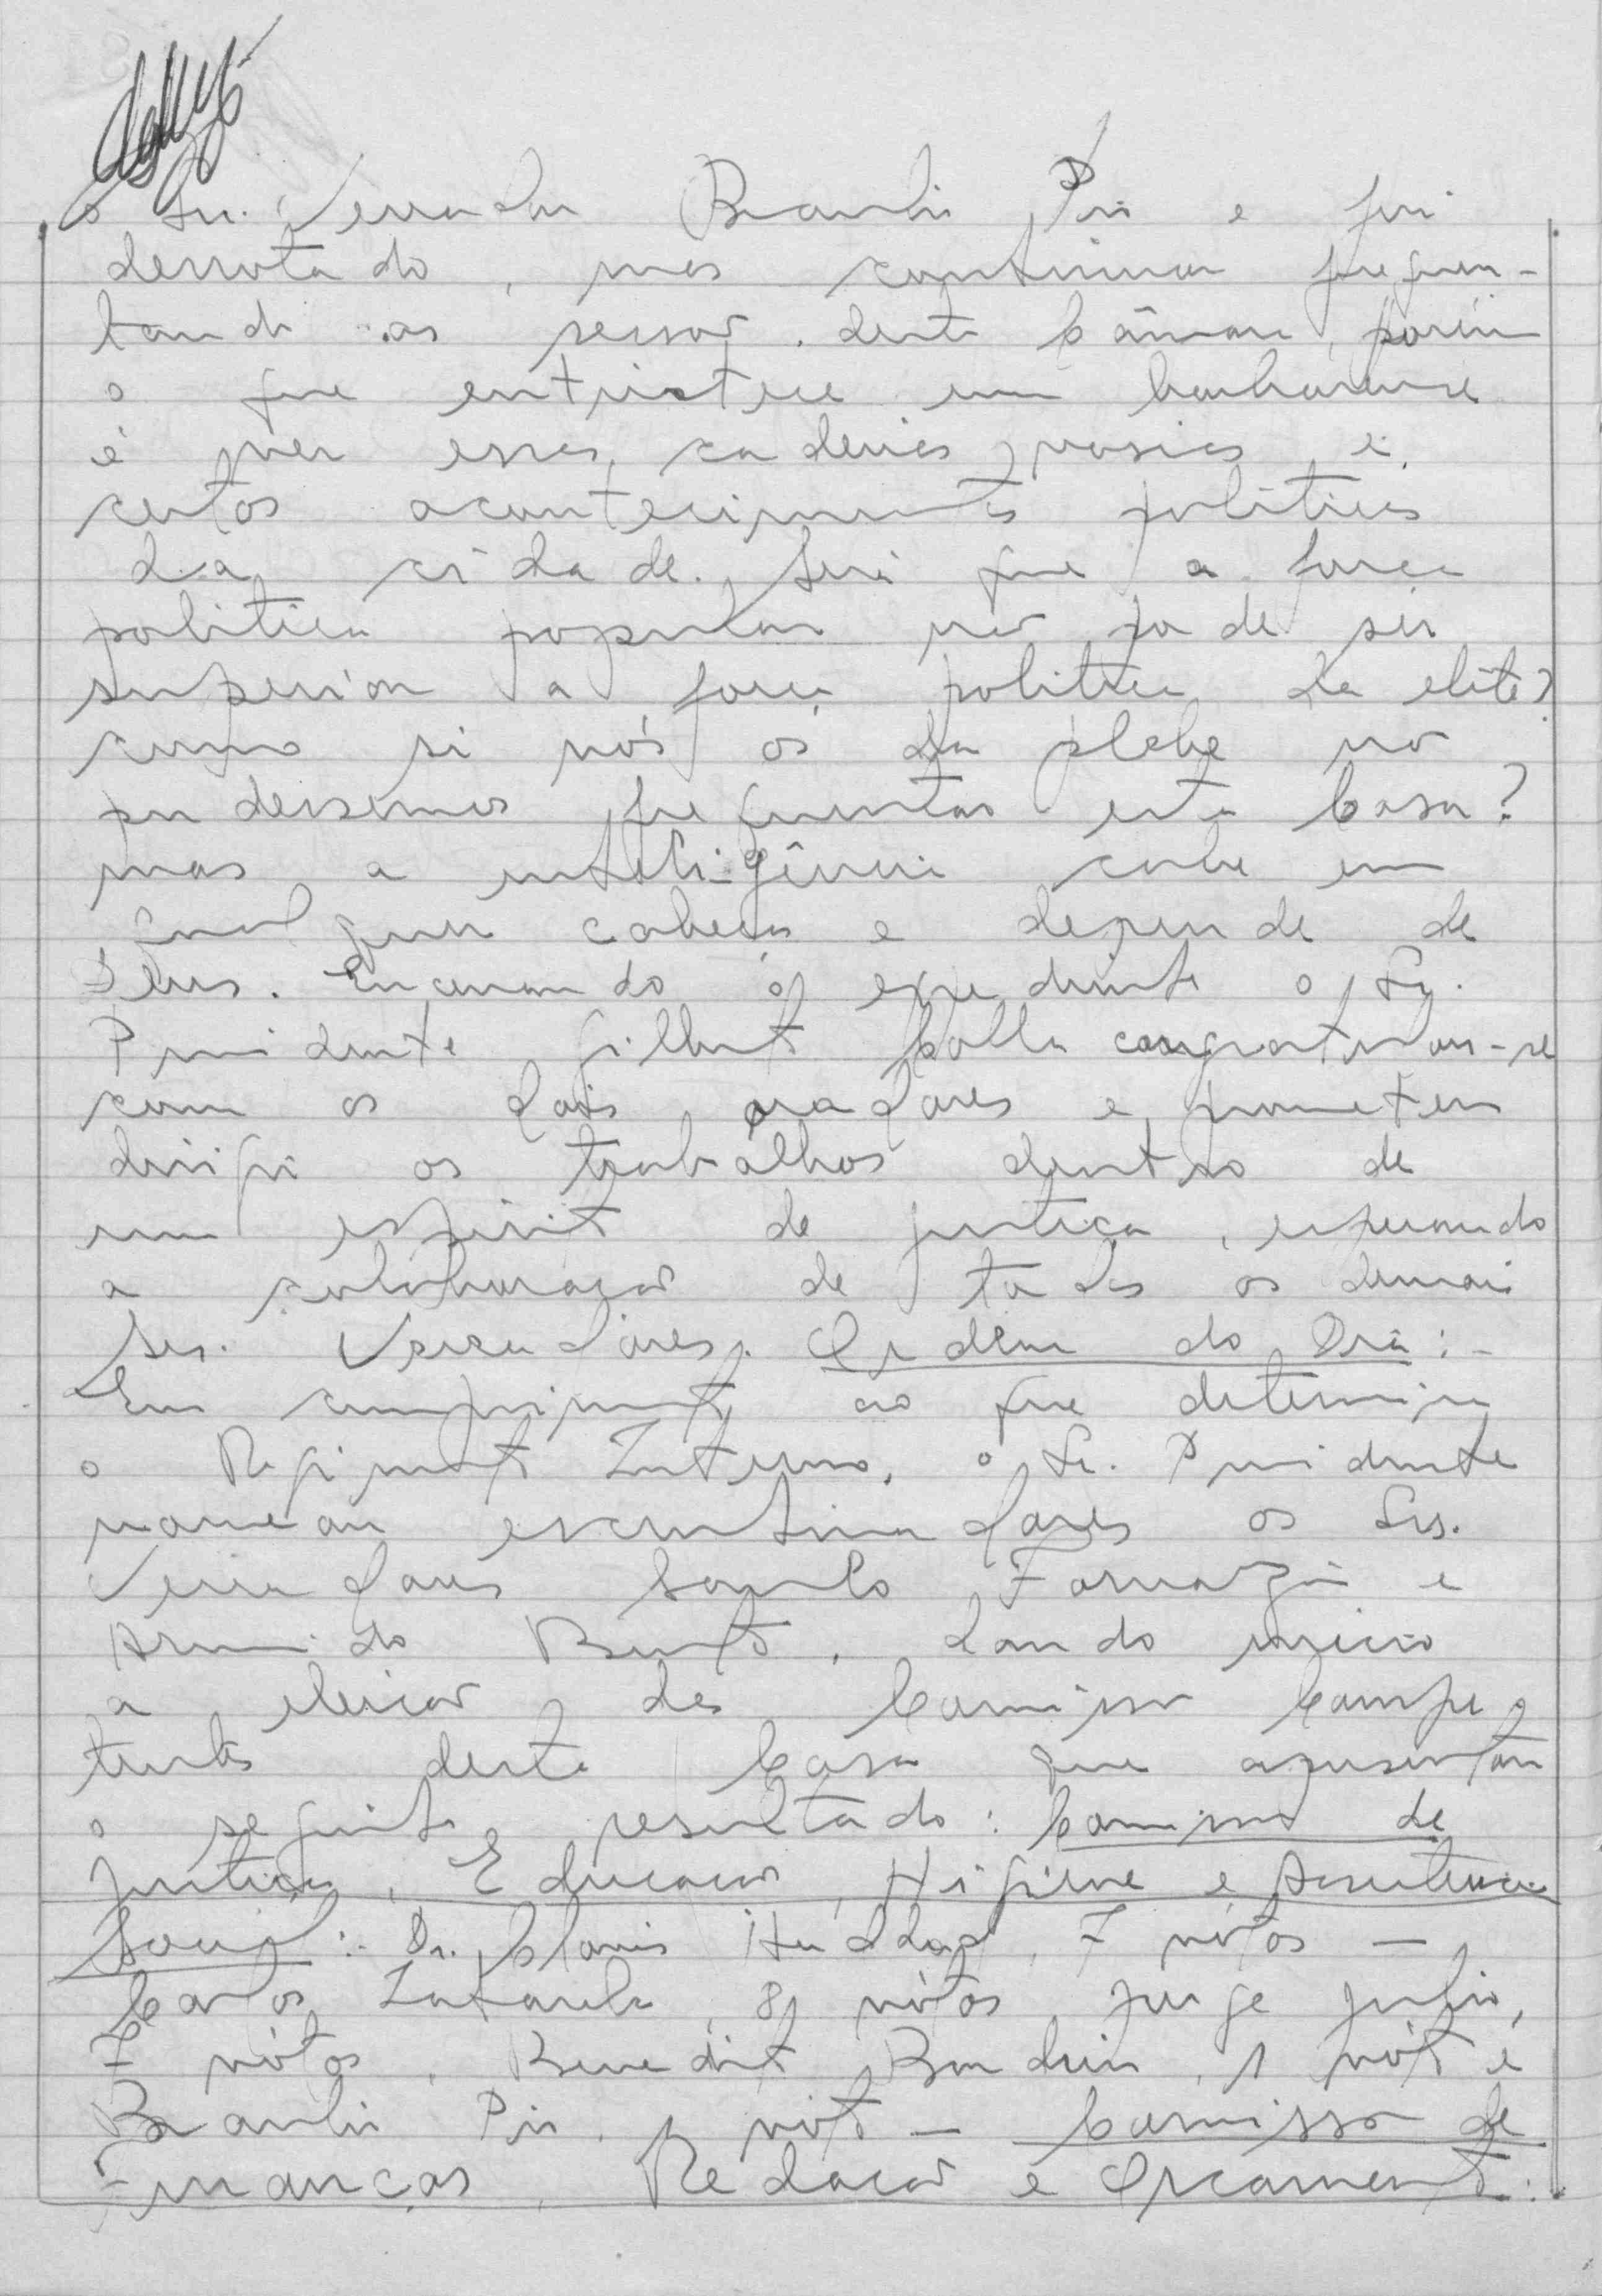 o Sr. Vereador Braulio Pio e fui
derrotado, mas continuou frequen-
tando as sessão desta Câmara, porém
o que entristece um
é ver esses cadeiras vasias e
certos acontecimentos politicos
da cidade. Será que a força
politica popular não pode ser
superior a força politica da elite?
como si nós os da plebe não
pudessemos frequentar esta Casa?
mas a inteligência cabe em
qualquer cabeça e depende de
Deus. Encerrando o expediente o Sr.
Presidente Gilberto Colla congratulou-se
com os dois oradores e prometeu
dirigir os trabalhos dentro de
um espirito de justiça, esperando
a colaboração de todos os demais
Srs. Vereadores. Ordem do Dia:-
Em cumprimento ao que determina
o Regimento Interno, o Sr. Presidente
nomeou escrutinadores os Srs.
Vereadores Santo Fornazin e
Armindo Bento, dando inicio
a eleição das Comissão Compe-
tentes desta Casa que apresentou
o seguinte resultado: Comissão de
Justiça, Educação, Higiene e Assistencia
Social:- Dr. Clovis Haddad, 7 vótos -
Carlos Zatarelo, 8 vótos, Jorge Julio,
7 vótos, Benedito, 1 vóto e
Braulio Pio, vóto - Comissão de
Finanças, Redação e Orçamento: